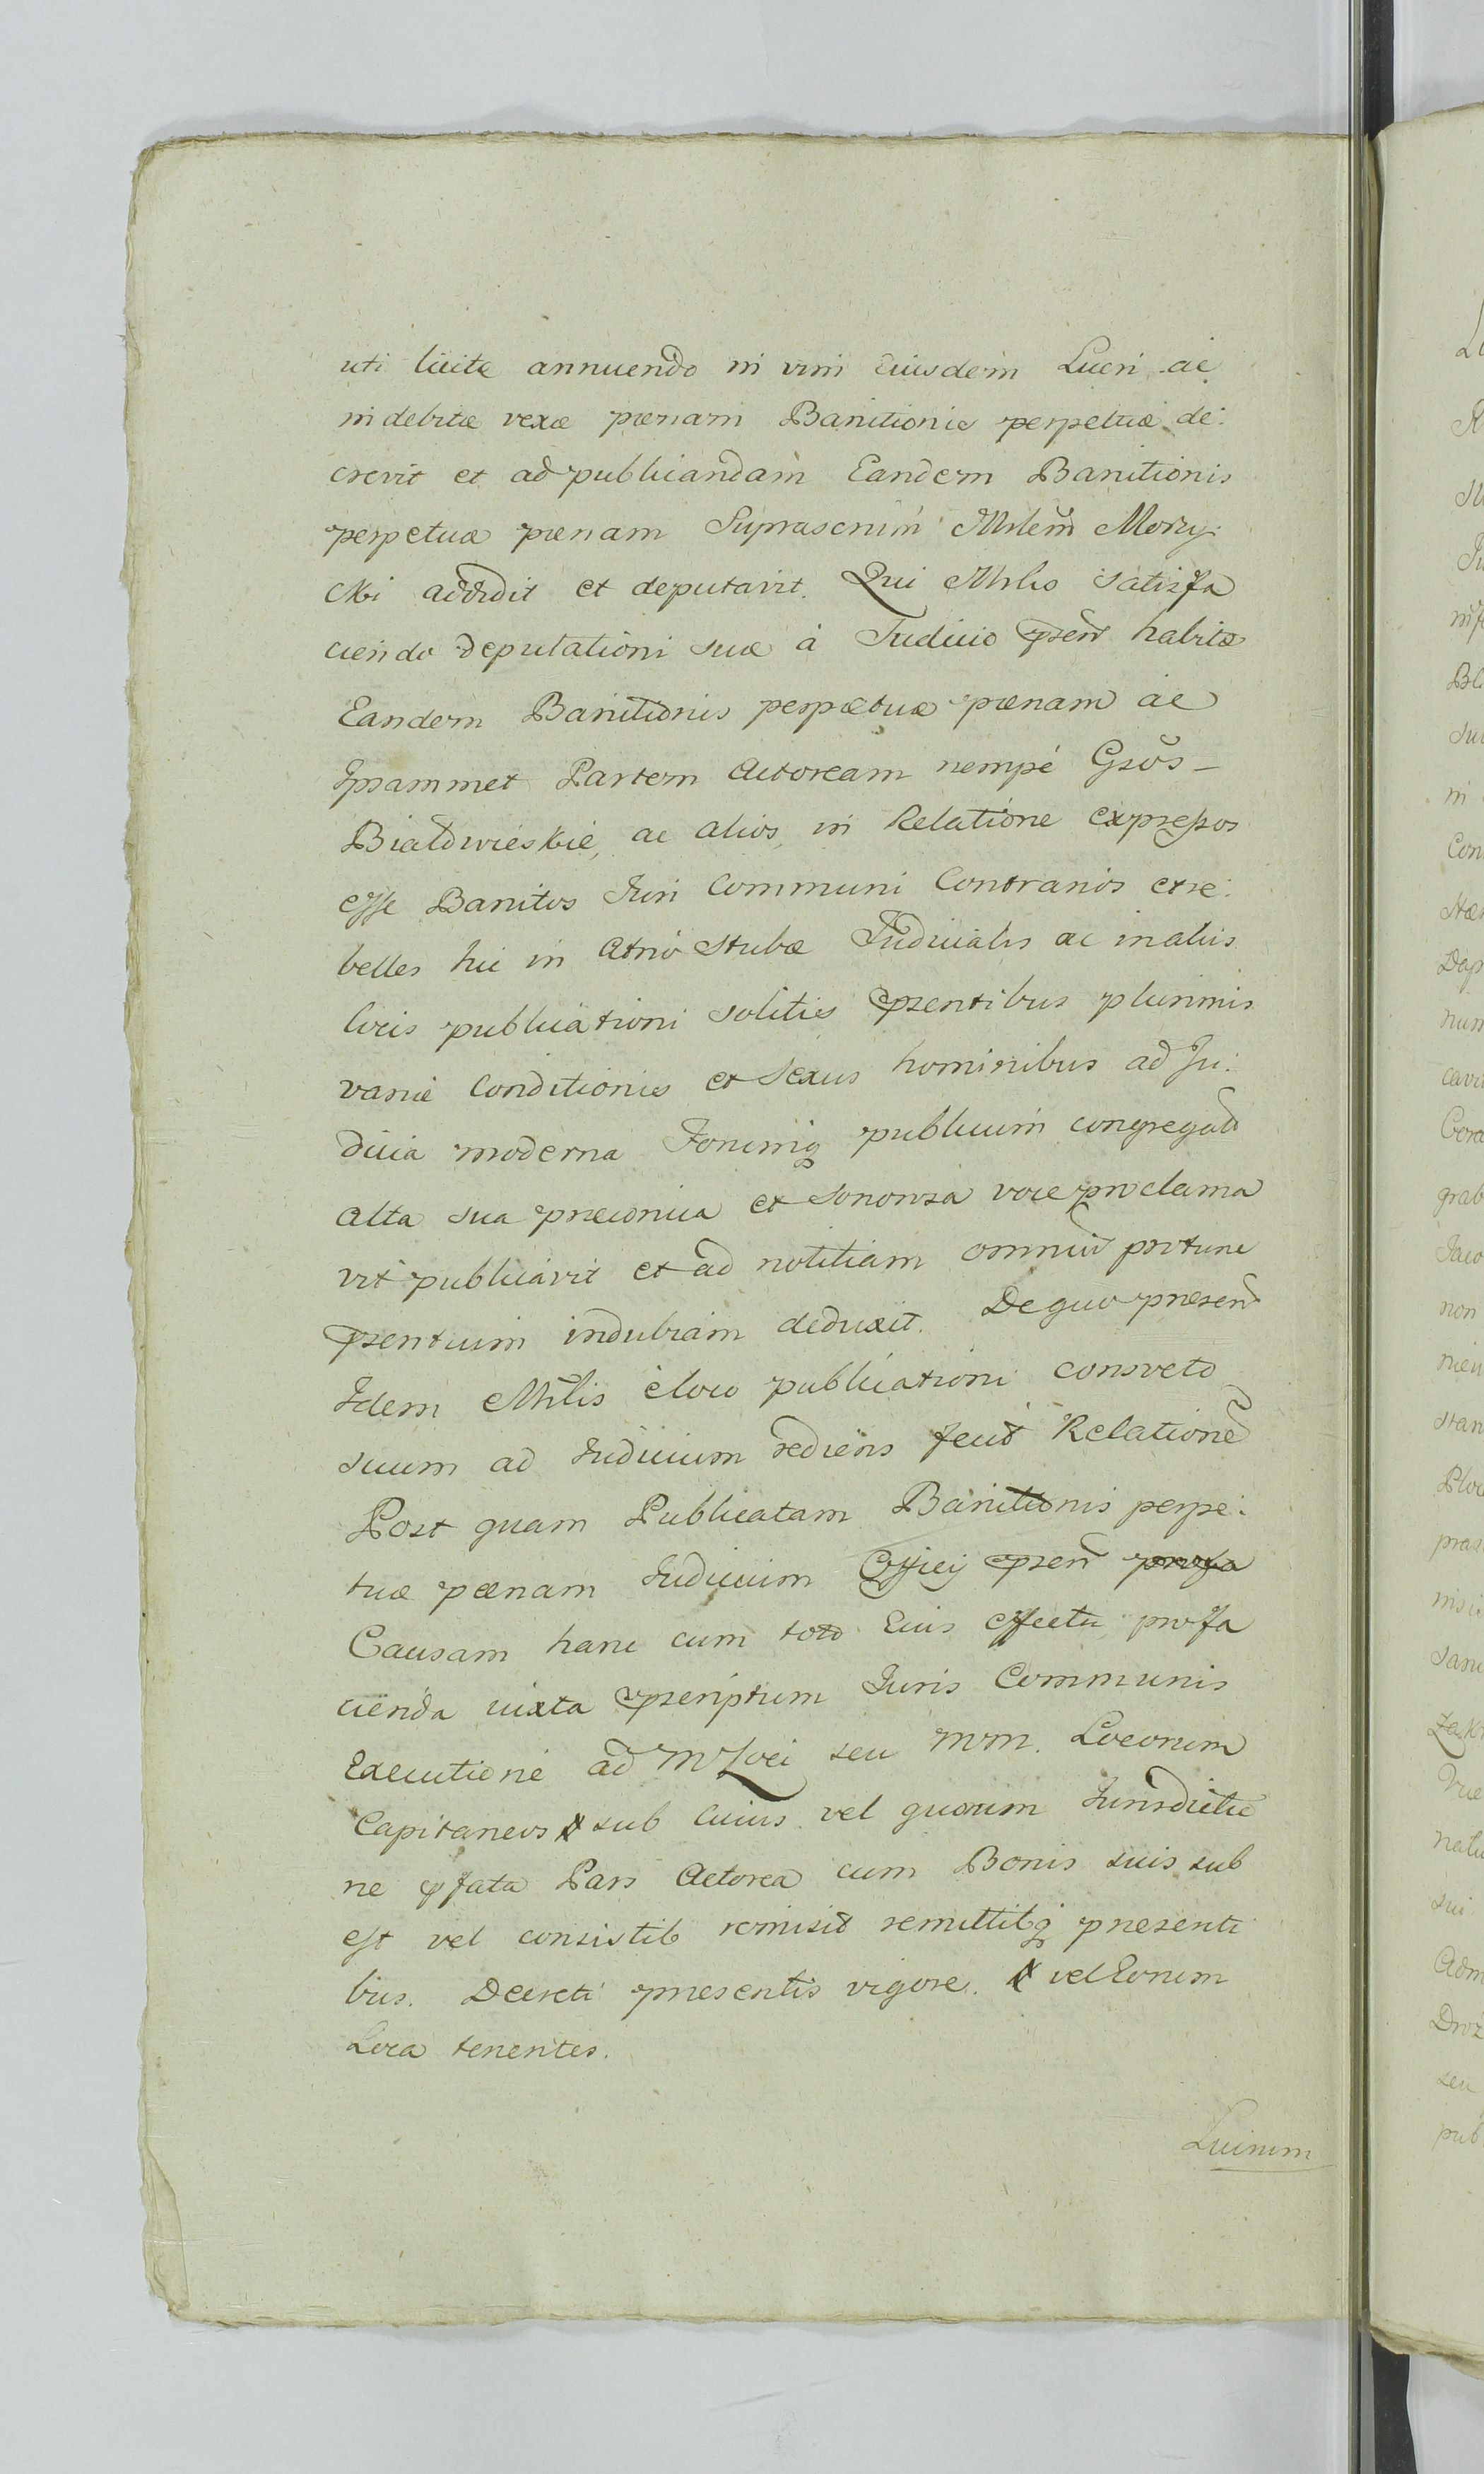 uti licite annuendo in vim Eiusdem Lucri ac
indebitæ vexæ pœnam Banitionis perpetuæ de:
crevit et ad publicandam Eandem Banitionis
perpetuæ pœnam Suprascrim Milem Morzy:
cki addidit et deputavit. Qui Mlis satisfa
ciendo deputationi suæ à Judicio psen habitæ
Eandem Banitionis perpœtuæ pœnam ac
Ipsammet Partem Actoream nempé Gsos –
Białowieskie, ac alios, in Relatione expressos
esse Banitos Juri Communi Contrarios et re:
belles hic in Atrio Stubæ Judicialis ac in aliis
locis publicationi solitis psentibus plurimis
variæ Conditionis et Sexus hominibus ad Ju:
dicia moderna Forumq publicum congregatis
alta sua præconica et sonorosa voce proclama
vit publicavit et ad notitiam omnium protunc
psentium indubiam deduxit. De quo præsen
Idem Mlis è loco publicationi consveto
suum ad Judicium rediens fecit Relationē
Post quam Publicatam Banitionis perpe:
tuæ pœnam Judicium Officij psen profa
Causam hanc cum toto Eius effectu profa
cienda iuxta pscriptum Juris Communis
Executione ad M Loci seu MM. Locorum
Capitaneos # sub cuius vel quorum Jurisdictio
ne pfata Pars Actorea cum Bonis suis sub
est vel consistit remisit remittitq præsenti
bus. Decreti præsentis vigore. # vel Eorum
Loca tenentes.
Lucrum